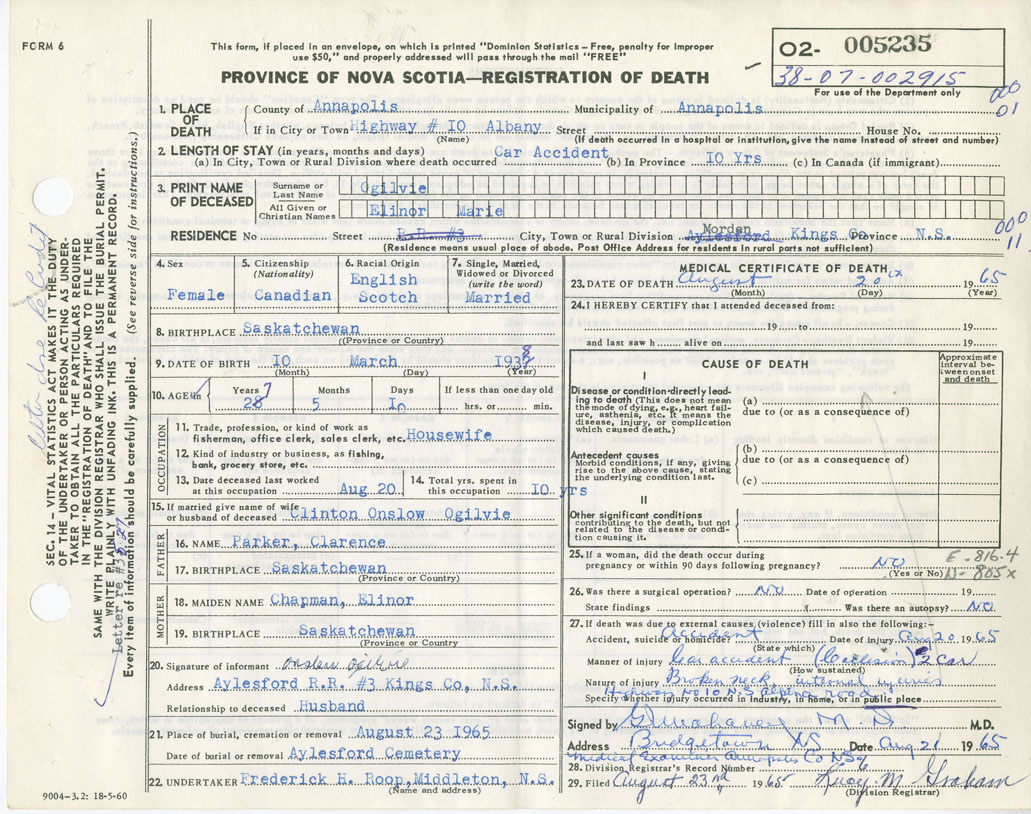 FORM 6
This form, if placed in an envelope, on which is printed "Dominion Statistics—Free, penalty for improper
use $50," and properly addressed will pass through the mail "FREE"
PROVINCE OF NOVA SCOTIA—REGISTRATION OF DEATH
02- 005235
38-07-002915
For use of the Department only
000
01
1. PLACE OF DEATH
County of Annapolis Municipality of Annapolis
If in City or Town Highway # 10 Albany Street House No.
(Name) (If death occurred in a hospital or institution, give the name instead of street and number)
2. LENGTH OF STAY (in years, months and days)
(a) In City, Town or Rural Division where death occurred Car Accident (b) In Province 10 Yrs (c) In Canada (if immigrant)
3. PRINT NAME OF DECEASED
Surname or Last Name Ogilvie
All Given or Christian Names Elinor Marie
RESIDENCE No Street R.R. #3 City, Town or Rural Division Aylesford Morden Kings Co Province N.S.
(Residence means usual place of abode. Post Office Address for residents in rural parts not sufficient)
000
11
4. Sex
Female
5. Citizenship
(Nationality)
Canadian
6. Racial Origin
English
Scotch
7. Single, Married,
Widowed or Divorced
(write the word)
Married
8. BIRTHPLACE Saskatchewan
((Province or Country)
9. DATE OF BIRTH 10 March 1938
(Month) (Day) (Year)
10. AGE
Years 27
Months 5
Days 10
If less than one day old
hrs. or min.
OCCUPATION
11. Trade, profession, or kind of work as
fisherman, office clerk, sales clerk, etc. Housewife
12. Kind of industry or business, as fishing,
bank, grocery store, etc.
13. Date deceased last worked
at this occupation Aug 20
14. Total yrs. spent in
this occupation 10 yrs
15. If married give name of wife
or husband of deceased Clinton Onslow Ogilvie
FATHER
16. NAME Parker, Clarence
17. BIRTHPLACE Saskatchewan
(Province or Country)
MOTHER
18. MAIDEN NAME Chapman, Elinor
19. BIRTHPLACE Saskatchewan
(Province or Country
20. Signature of informant Onslow Ogilvie
Address Aylesford R.R. #3 Kings Co, N.S.
Relationship to deceased Husband
21. Place of burial, cremation or removal August 23 1965
Date of burial or removal Aylesford Cemetery
22. UNDERTAKER Frederick H. Roop, Middleton, N.S.
(Name and address)
MEDICAL CERTIFICATE OF DEATH
23. DATE OF DEATH August 20th 1965
(Month) (Day) (Year)
24. I HEREBY CERTIFY that I attended deceased from:
19 to 19
and last saw h alive on 19
CAUSE OF DEATH
Approximate interval between onset and death
I
Disease or condition directly leading to death (This does not mean the mode of dying, e.g., heart failure, asthenia, etc. It means the disease, injury, or complication which caused death.)
(a)
due to (or as a consequence of)
Antecedent causes
Morbid conditions, if any, giving rise to the above cause, stating the underlying condition last.
(b)
due to (or as a consequence of)
(c)
II
Other significant conditions
contributing to the death, but not related to the disease or condition causing it.
25. If a woman, did the death occur during
pregnancy or within 90 days following pregnancy? NO
(Yes or No)
E-816.4
N-805x
26. Was there a surgical operation? NO Date of operation 19
State findings Was there an autopsy? NO
27. If death was due to external causes (violence) fill in also the following:—
Accident, suicide or homicide? Accident Date of injury Aug 20 1965
(State which)
Manner of injury Car accident (Collision) 2 Car
(How sustained)
Nature of injury Broken neck, internal injuries
Specify whether injury occurred in industry, in home, or in public place
Highway No 10 N.S.
Signed by M.D. M.D.
Address Bridgetown NS Date Aug 21 1965
Medical Examiner Annapolis Co NS
28. Division Registrar's Record Number 6
29. Filed August 23rd 1965 M. Graham
(Division Registrar)
SEC. 14—VITAL STATISTICS ACT MAKES IT THE DUTY
OF THE UNDERTAKER OR PERSON ACTING AS UNDERTAKER
TO OBTAIN ALL THE PARTICULARS REQUIRED
IN THE "REGISTRATION OF DEATH" AND TO FILE THE
SAME WITH THE DIVISION REGISTRAR WHO SHALL ISSUE THE BURIAL PERMIT.
WRITE PLAINLY WITH UNFADING INK. THIS IS A PERMANENT RECORD.
Letter re #3
Every item of information should be carefully supplied. (See reverse side for instructions.)
9004-3.2: 18-5-60